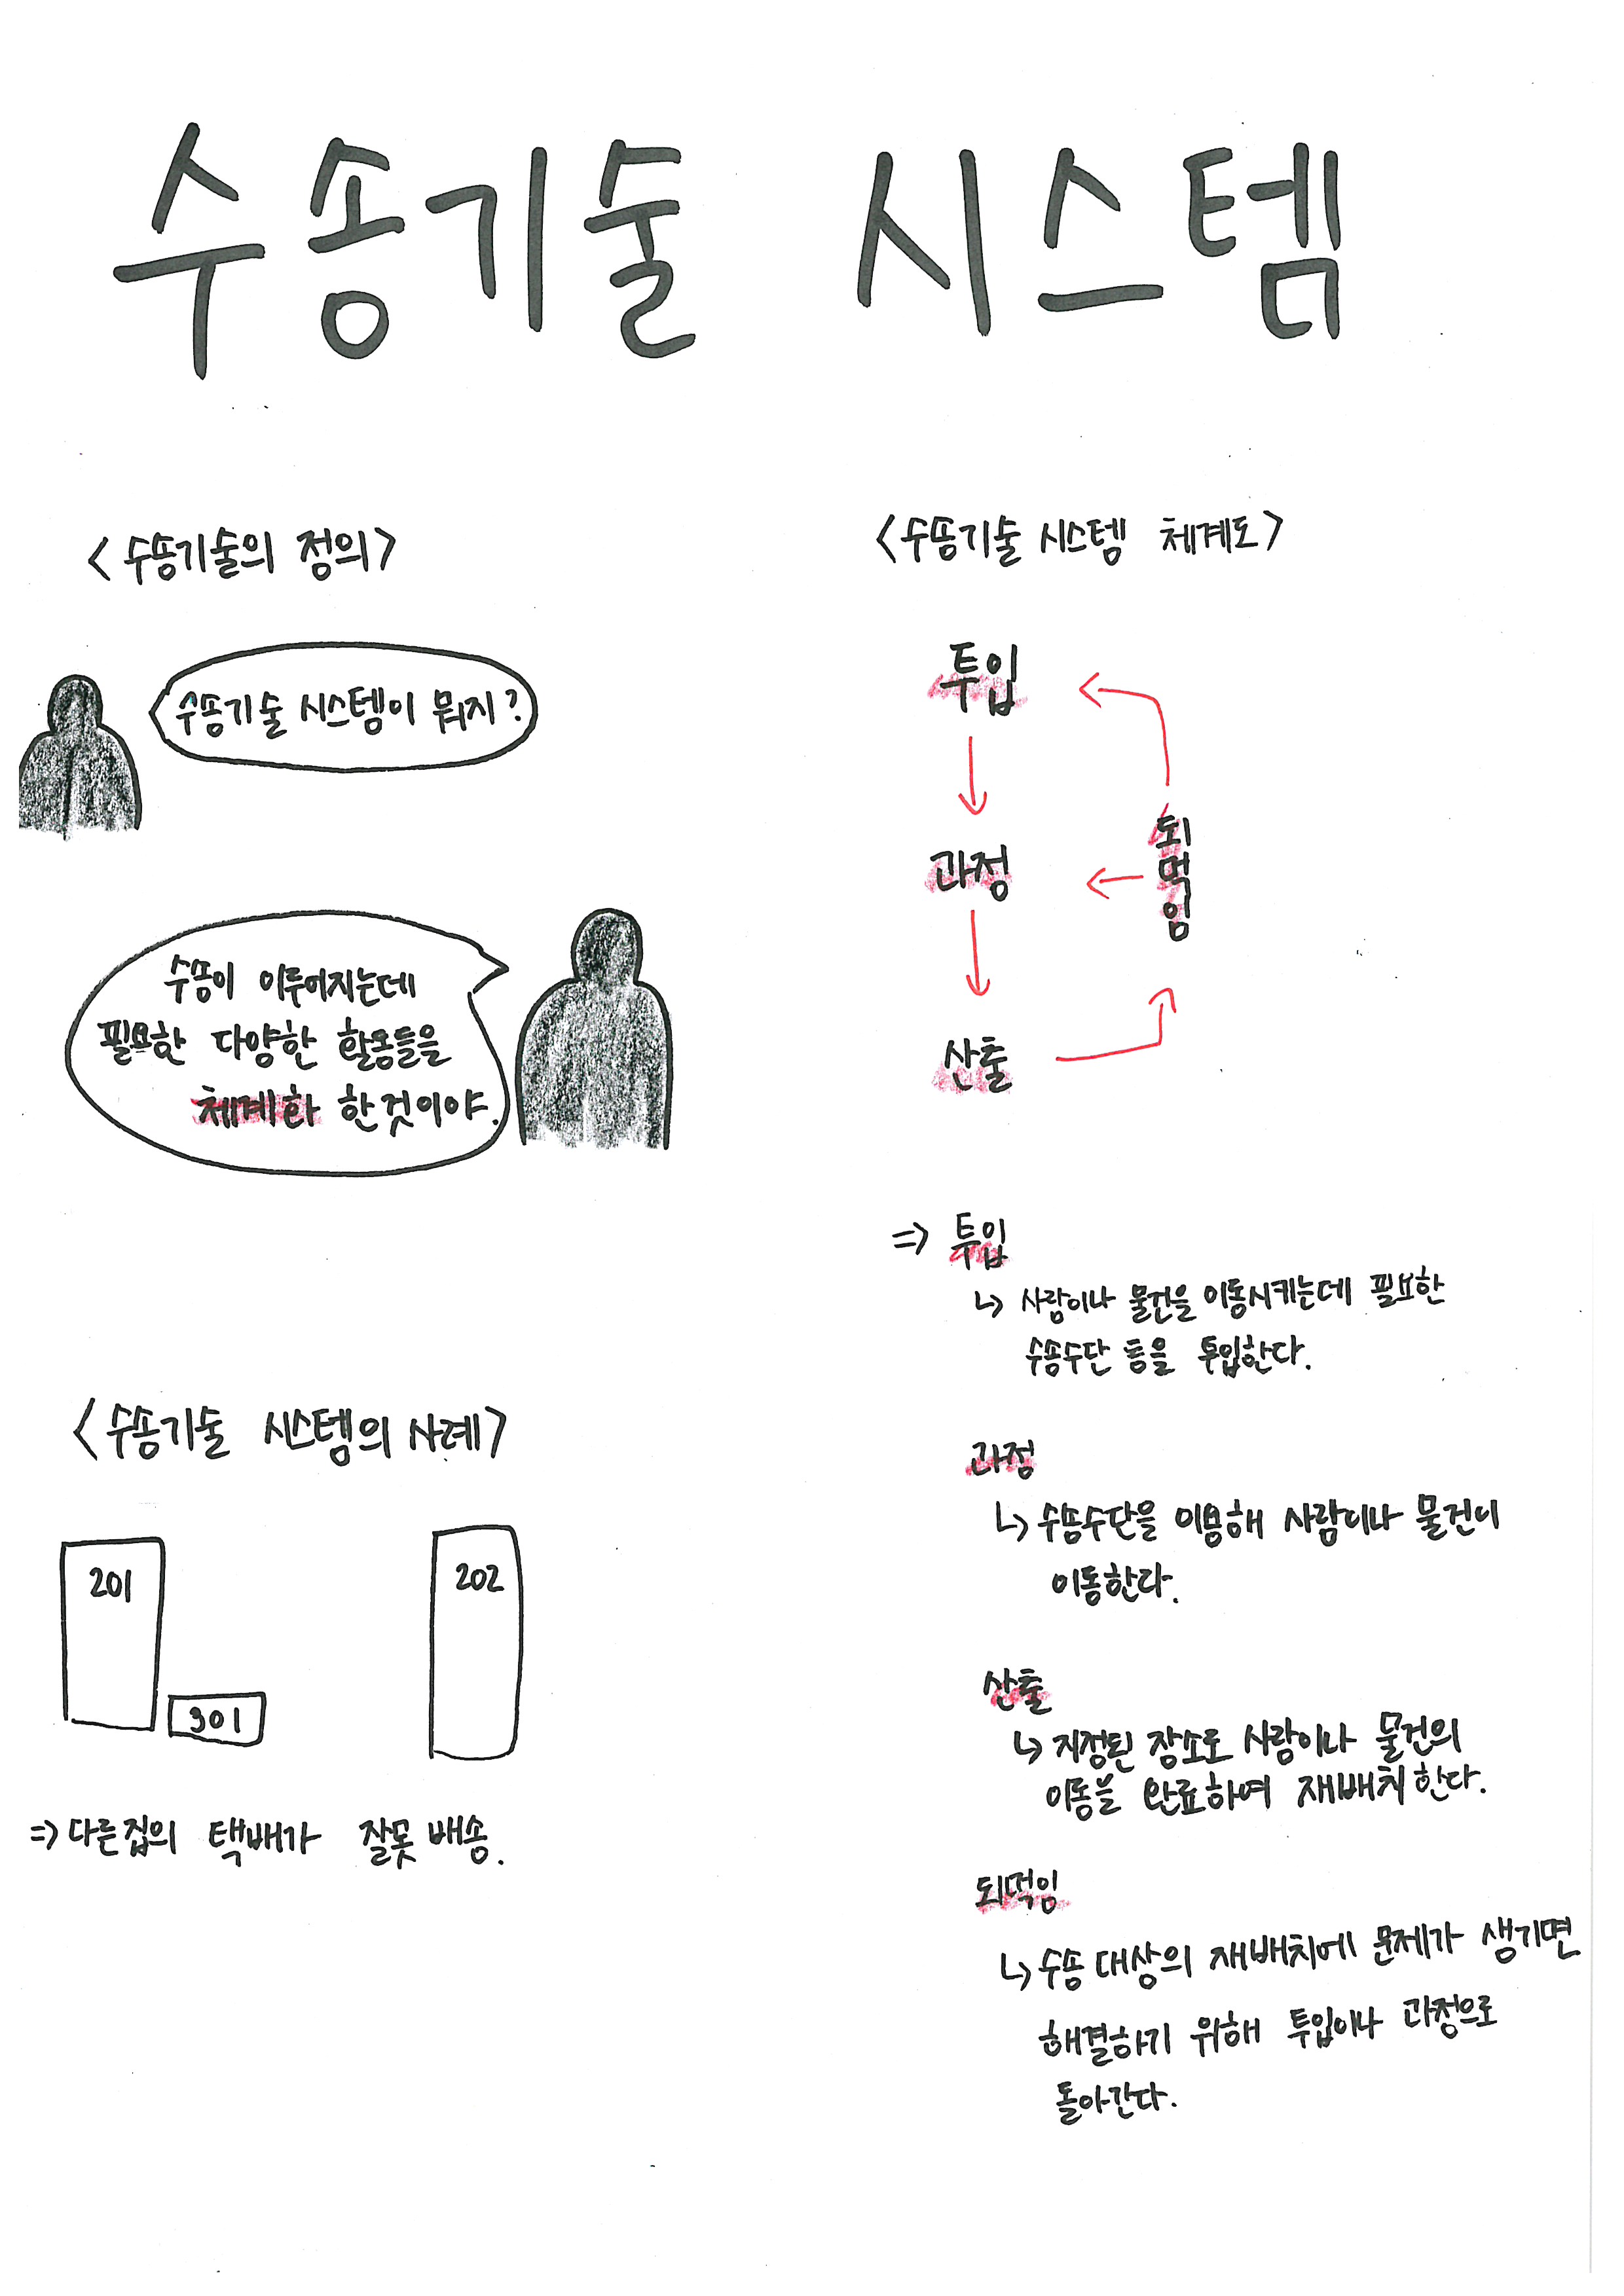 수송기술 시스템
<수송기술의 정의>
수송기술 시스템이 뭐지?
수송이 이루어지는데
필요한 다양한 활동들을
체계화 한것이야.
<수송기술 시스템의 사례>
201
301
202
=> 다른집의 택배가 잘못 배송.
<수송기술 시스템 체계도>
투입
과정
되먹임
산출
=> 투입
↳ 사람이나 물건을 이동시키는데 필요한
수송수단 등을 투입한다.
과정
↳ 수송수단을 이용해 사람이나 물건이
이동한다.
산출
↳ 지정된 장소로 사람이나 물건의
이동을 완료하여 재배치한다.
되먹임
↳ 수송 대상의 재배치에 문제가 생기면
해결하기 위해 투입이나 과정으로
돌아간다.